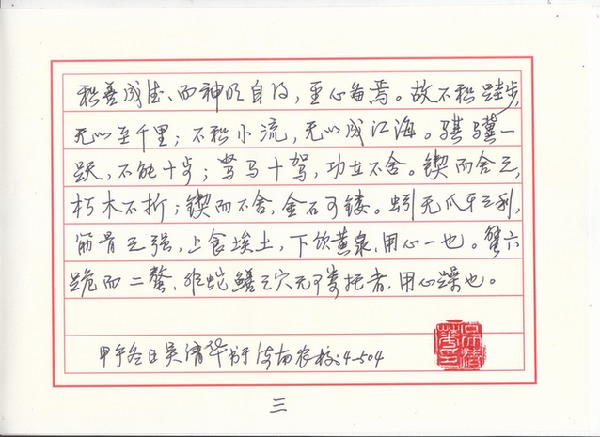 积善成德、而神明自得,圣心备焉。故不积跬步,
无以至千里;不积小流,无以成江海。骐骥一
跃,不能十步;驽马十驾,功在不舍。锲而舍之,
朽木不折;锲而不舍,金石可镂。蚓无爪牙之利,
筋骨之强,上食埃土,下饮黄泉,用心一也。蟹六
跪而二螯、非蛇鳝之穴无可寄托者、用心躁也。
甲午冬日吴清华书于海南农校4-504
三